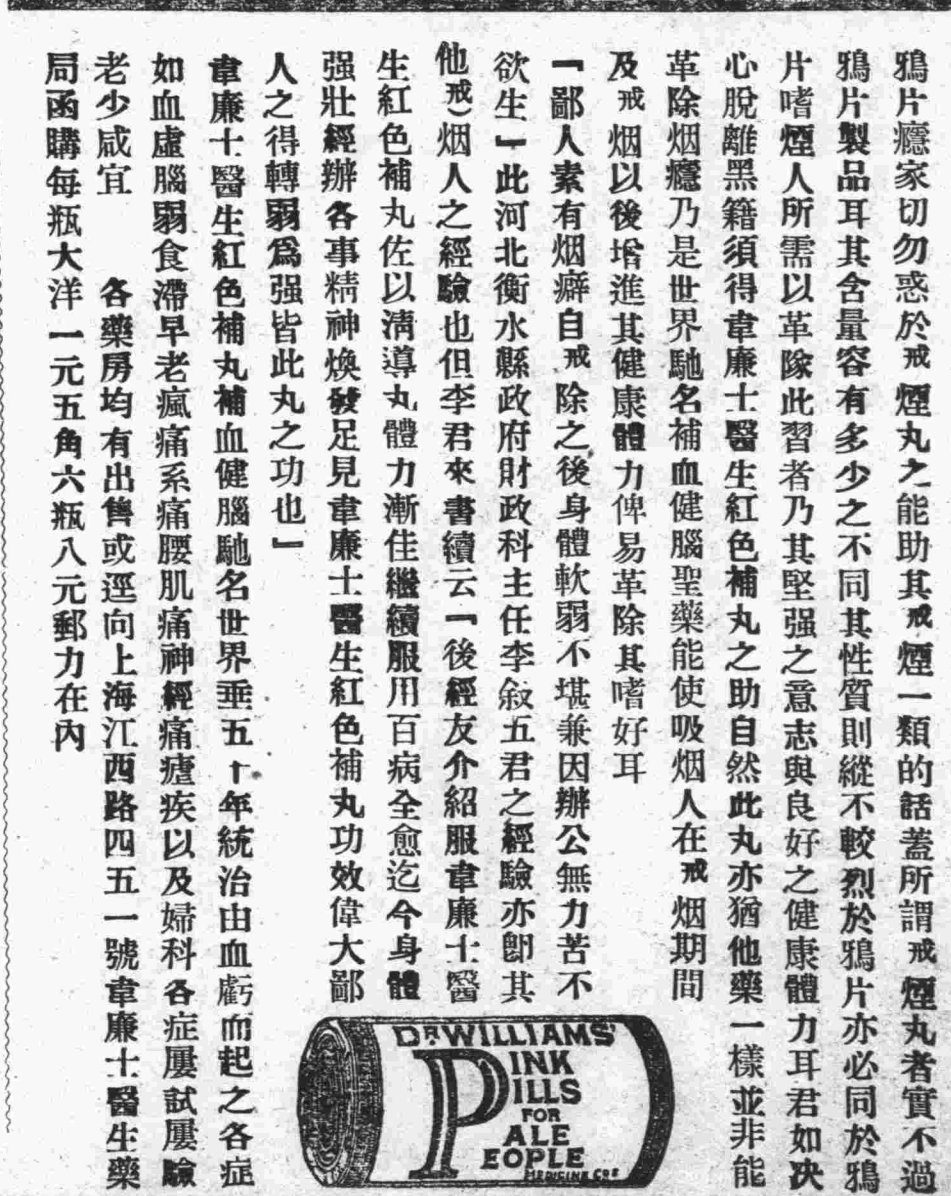 鴉片癮家切勿惑於戒煙丸之能助其戒煙一類的話蓋所謂戒煙丸者實不過
鴉片製品耳其含量容有多少之不同其性質則縱不較烈於鴉片亦必同於鴉
片嗜煙人所需以革除此習者乃其堅强之意志與良好之健康體力耳君如决
心脫離黑籍須得韋廉士醫生紅色補丸之助自然此丸亦猶他藥一樣並非能
革除烟癮乃是世界馳名補血健腦聖藥能使吸烟人在戒烟期間
及戒烟以後增進其健康體力俾易革除其嗜好耳
「鄙人素有烟癖自戒除之後身體軟弱不堪兼因辦公無力苦不
欲生」此河北衡水縣政府財政科主任李敘五君之經驗亦卽其
他戒)烟人之經驗也但李君來書續云「後經友介紹服韋廉士醫
生紅色補丸佐以淸導丸體力漸佳繼續服用百病全愈迄今身體
强壯經辦各事精神煥發足見韋廉士醫生紅色補丸功效偉大鄙
人之得轉弱爲强皆此丸之功也」
韋廉士醫生紅色補丸補血健腦馳名世界垂五十年統治由血虧而起之各症
如血虛腦弱食滯早老瘋痛系痛腰肌痛神經痛瘧疾以及婦科各症屢試屢驗
老少咸宜　各藥房均有出售或逕向上海江西路四五一號韋廉士醫生藥
局函購每瓶大洋一元五角六瓶八元郵力在內
DR WILLIAMS'
PINK
PILLS
FOR
PALE
PEOPLE
MEDICINE CO